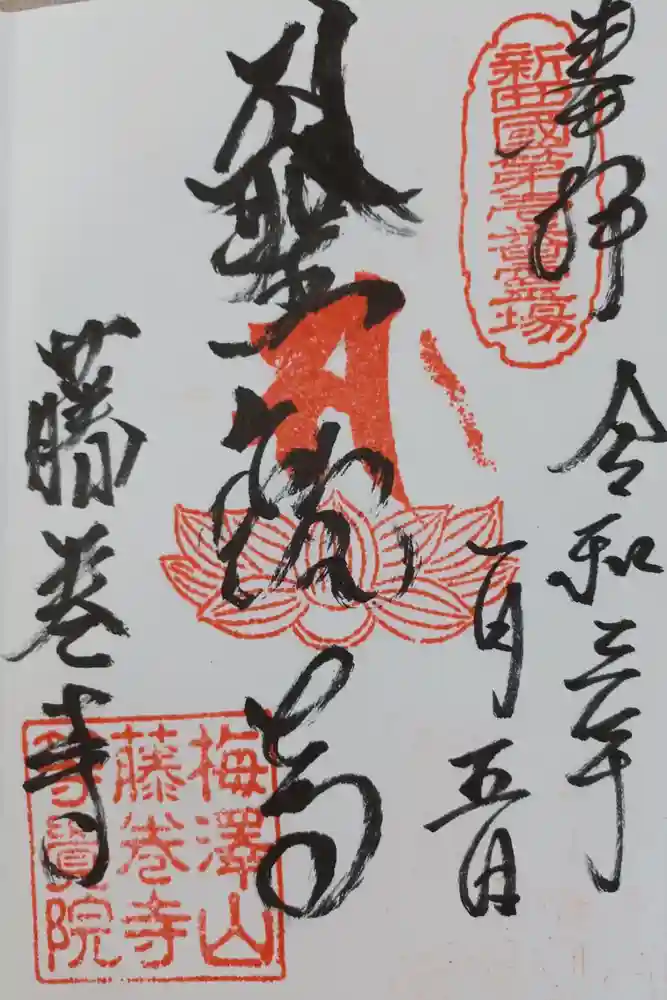 奉拝
新四國第壱番靈場
令和三年
一月五日
藤巻寺
梅澤山
藤巻寺
等覺院